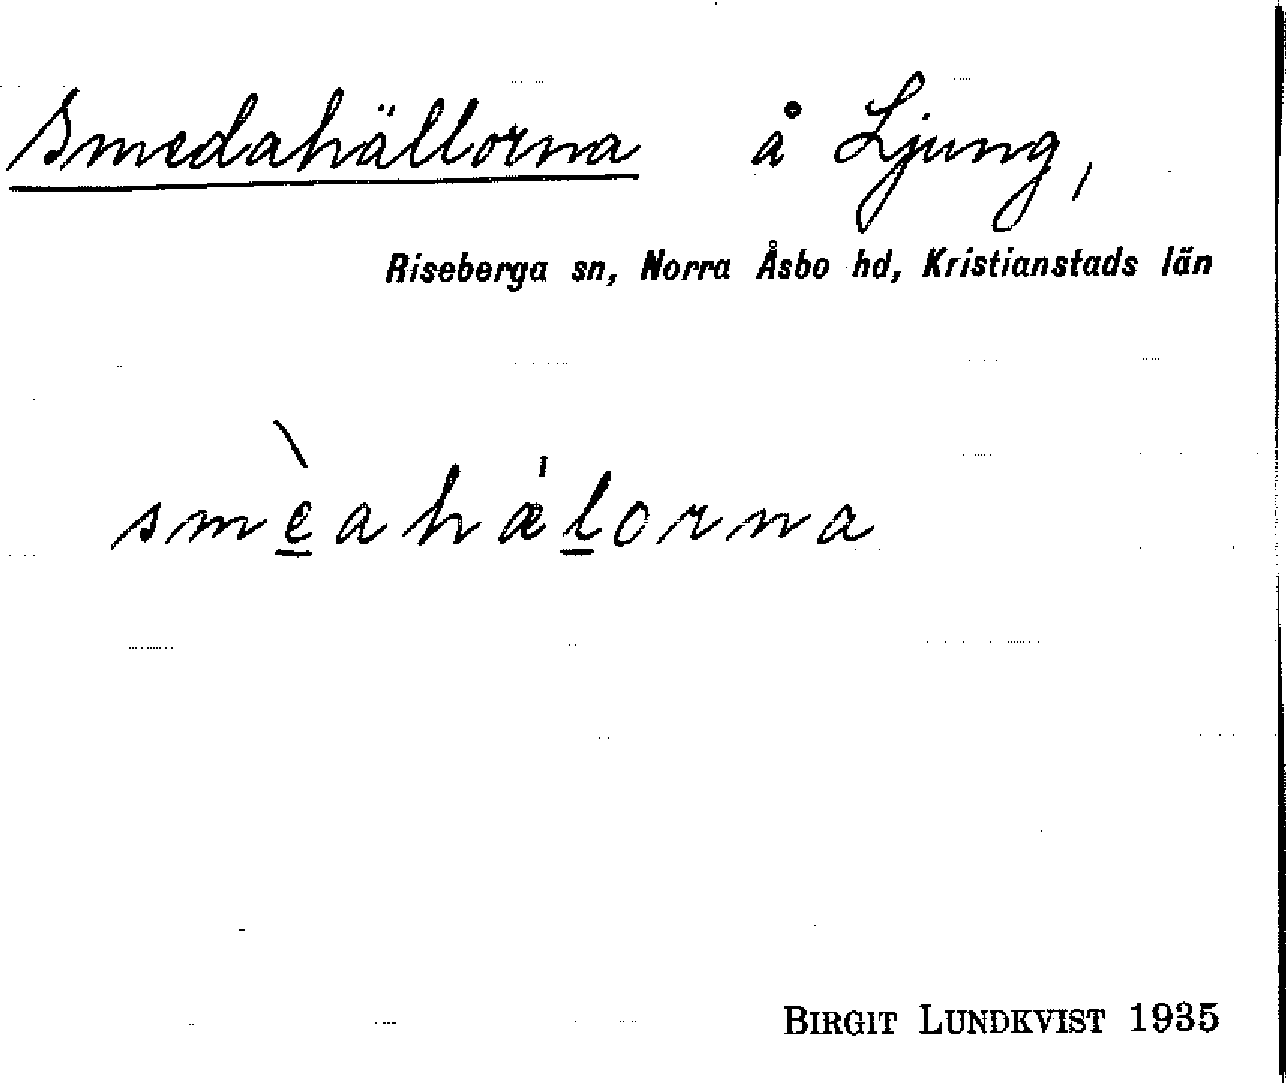 Smedahällorna å Ljung,
Riseberga sn, Norra Åsbo hd, Kristianstads län
smèahælorna
BIRGIT LUNDKVIST 1935